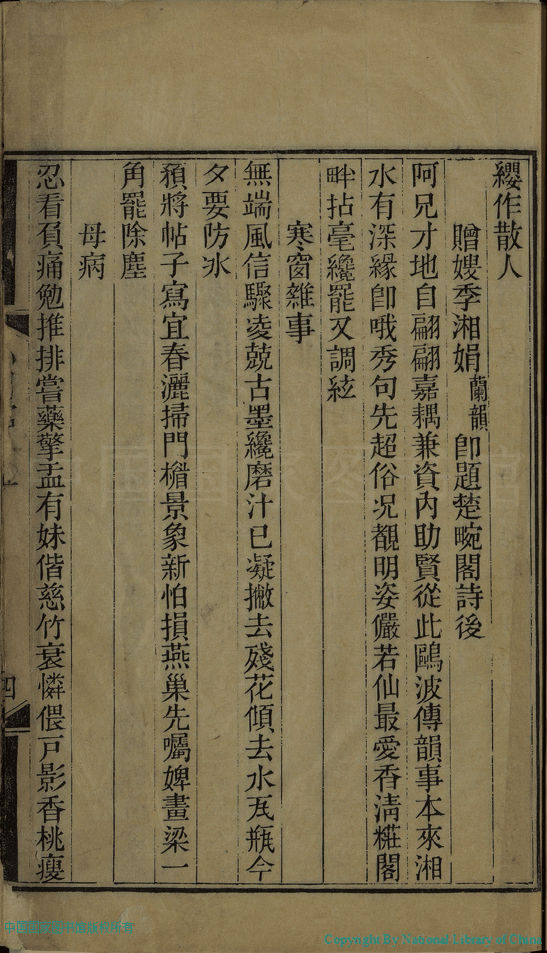 纓作散人
贈嫂季湘娟蘭韻卽題楚畹閣詩後
阿兄才地自翩翩嘉耦兼資內助賢從此鷗波傳韻事本來湘
水有深緣卽哦秀句先超俗况覩明姿儼若仙最愛香淸糚閣
畔拈毫纔罷又調絃
寒窗雜事
無端風信驟凌兢古墨纔磨汁已凝撇去殘花傾去水瓦瓶今
夕要防冰
頮將帖子寫宜春灑掃門楣景象新怕損燕巢先囑婢畫梁一
角罷除塵
母病
忍看頁痛勉推排嘗藥擎盂有妹偕慈竹衰憐偎戸影香桃瘦
四
Copyright By National Library of China